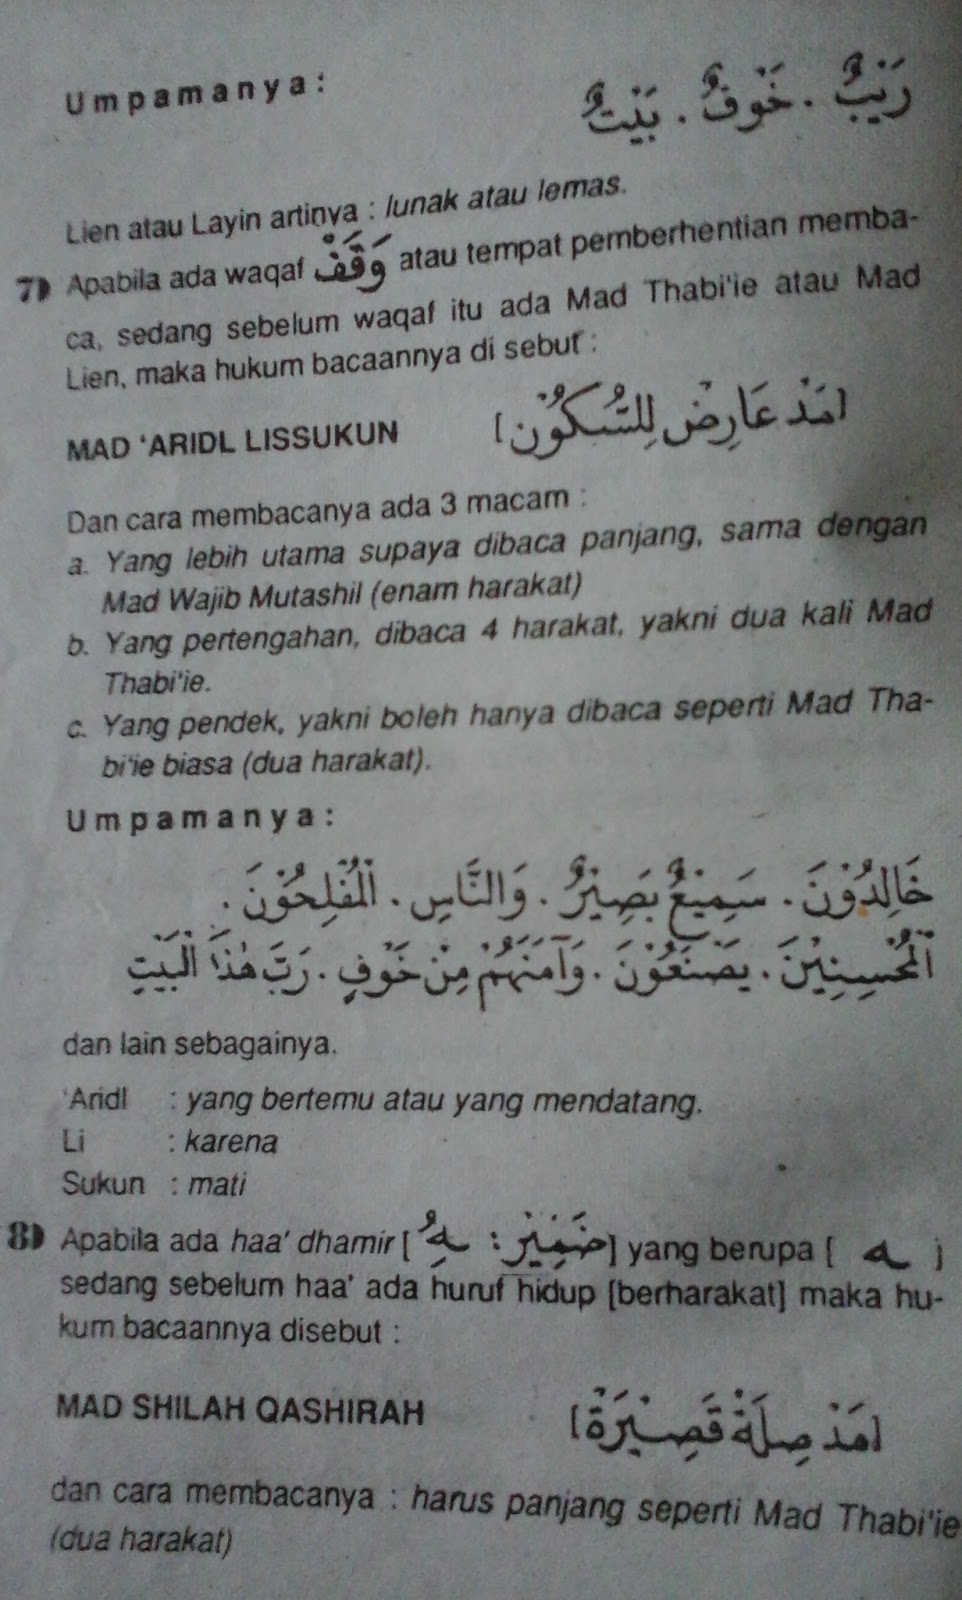 Umpamanya :   رَيْبٌ . خَوْفٌ . بَيْتٌ
Lien atau Layin artinya : lunak atau lemas.
7) Apabila ada waqaf وَقَفْ atau tempat pemberhentian memba-
ca, sedang sebelum waqaf itu ada Mad Thabi'ie atau Mad
Lien, maka hukum bacaannya di sebut :
MAD 'ARIDL LISSUKUN   [مَدْ عَارِضْ لِلسُّكُوْن]
Dan cara membacanya ada 3 macam :
a. Yang lebih utama supaya dibaca panjang, sama dengan
Mad Wajib Mutashil (enam harakat)
b. Yang pertengahan, dibaca 4 harakat, yakni dua kali Mad
Thabi'ie.
c. Yang pendek, yakni boleh hanya dibaca seperti Mad Tha-
bi'ie biasa (dua harakat).
Umpamanya :
خَالِدُوْنَ . سَمِيْعٌ بَصِيْرٌ . وَالنَّاسِ . الْمُفْلِحُوْنَ .
الْمُحْسِنِيْنَ . يَصْنَعُوْنَ . وَآمَنَهُمْ مِنْ خَوْفٍ . رَبَّ هٰذَا الْبَيْتِ
dan lain sebagainya.
'Aridl : yang bertemu atau yang mendatang.
Li : karena
Sukun : mati
8) Apabila ada haa' dhamir [ضَمِيْر : ـهِ ـهُ] yang berupa [ ـه ]
sedang sebelum haa' ada huruf hidup [berharakat] maka hu-
kum bacaannya disebut :
MAD SHILAH QASHIRAH   [مَدْ صِلَةْ قَصِيْرَةْ]
dan cara membacanya : harus panjang seperti Mad Thabi'ie
(dua harakat)